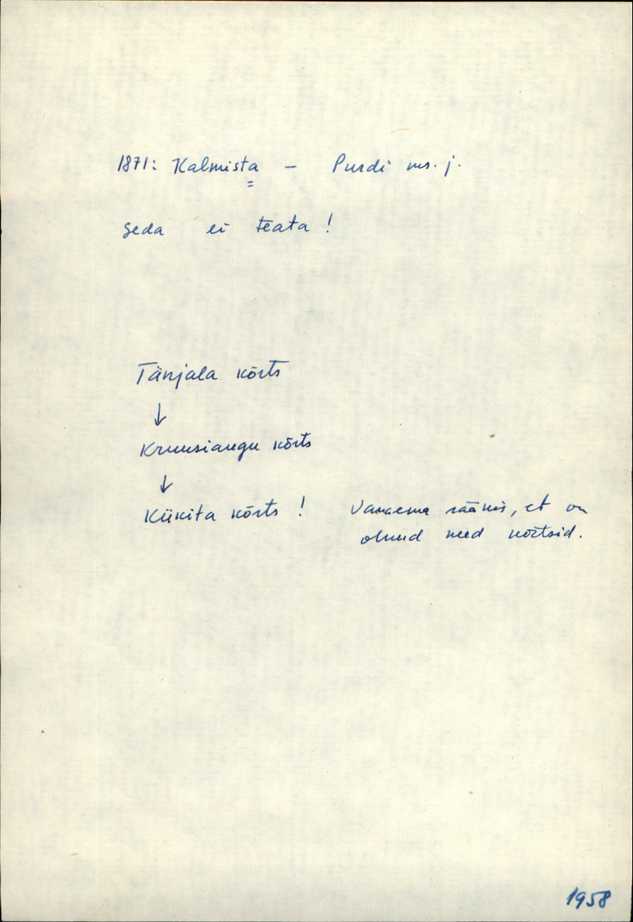 1871: Kalmista – Purdi ms. j.
Seda ei teata!
Tänjala kõrts
↓
Kruusiaugu kõrts
↓
Kükita kõrts! Vanaema rääkis, et on
olnud need kõrtsid.
1958